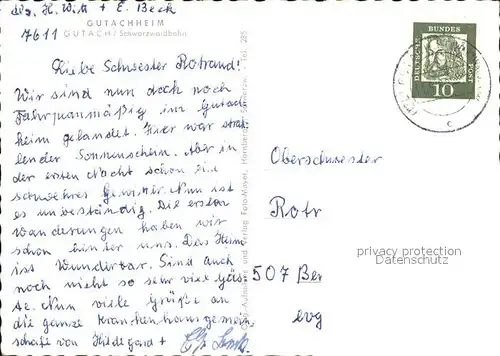 H. Witt + E. Beck
GUTACHHEIM
7611 GUTACH / Schwarzwaldbahn
DEUTSCHE BUNDES POST
10
Liebe Schwester Rotraud!
Wir sind nun doch noch
fahrplanmäßig im Gutach
heim gelandet. Hier war strah
lender Sonnenschein. Aber in
der ersten Nacht schon ein
schwehres Gewitter. Nun ist
es unbeständig. Die ersten
Wanderungen haben wir
schon hinter uns. Das Heim
ist Wunderbar. Sind auch
noch nicht so sehr viel Gäs
te. Nun viele Grüße an
die ganze Krankenhausgemein
schafe von Hildegard +
Oberschwester
Rotr
507 Ber
evg
privacy protection
Datenschutz